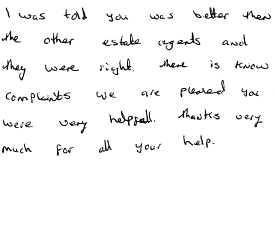 I was told you was better then
the other estate agents and
they were right. there is know
complaints we are pleased you
were very helpfull. thanks very
much for all your help.